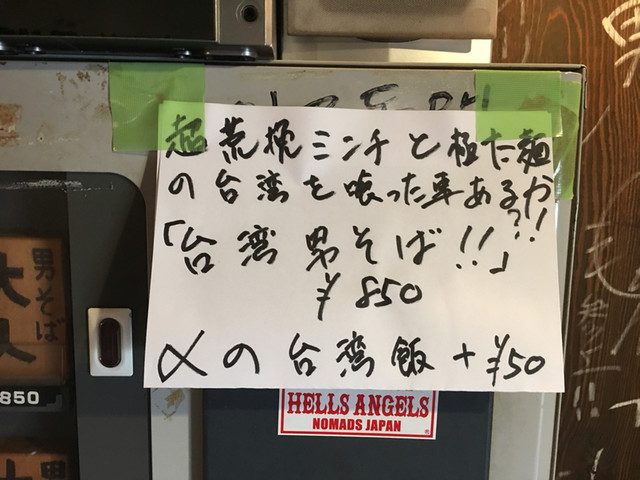 超荒挽ミンチと極太麺
の台湾を喰った事あるか
?!!
「台湾男そば!!」
¥850
〆の台湾飯+¥50
HELLS ANGELS
NOMADS JAPAN
男そば
大
人
850
男